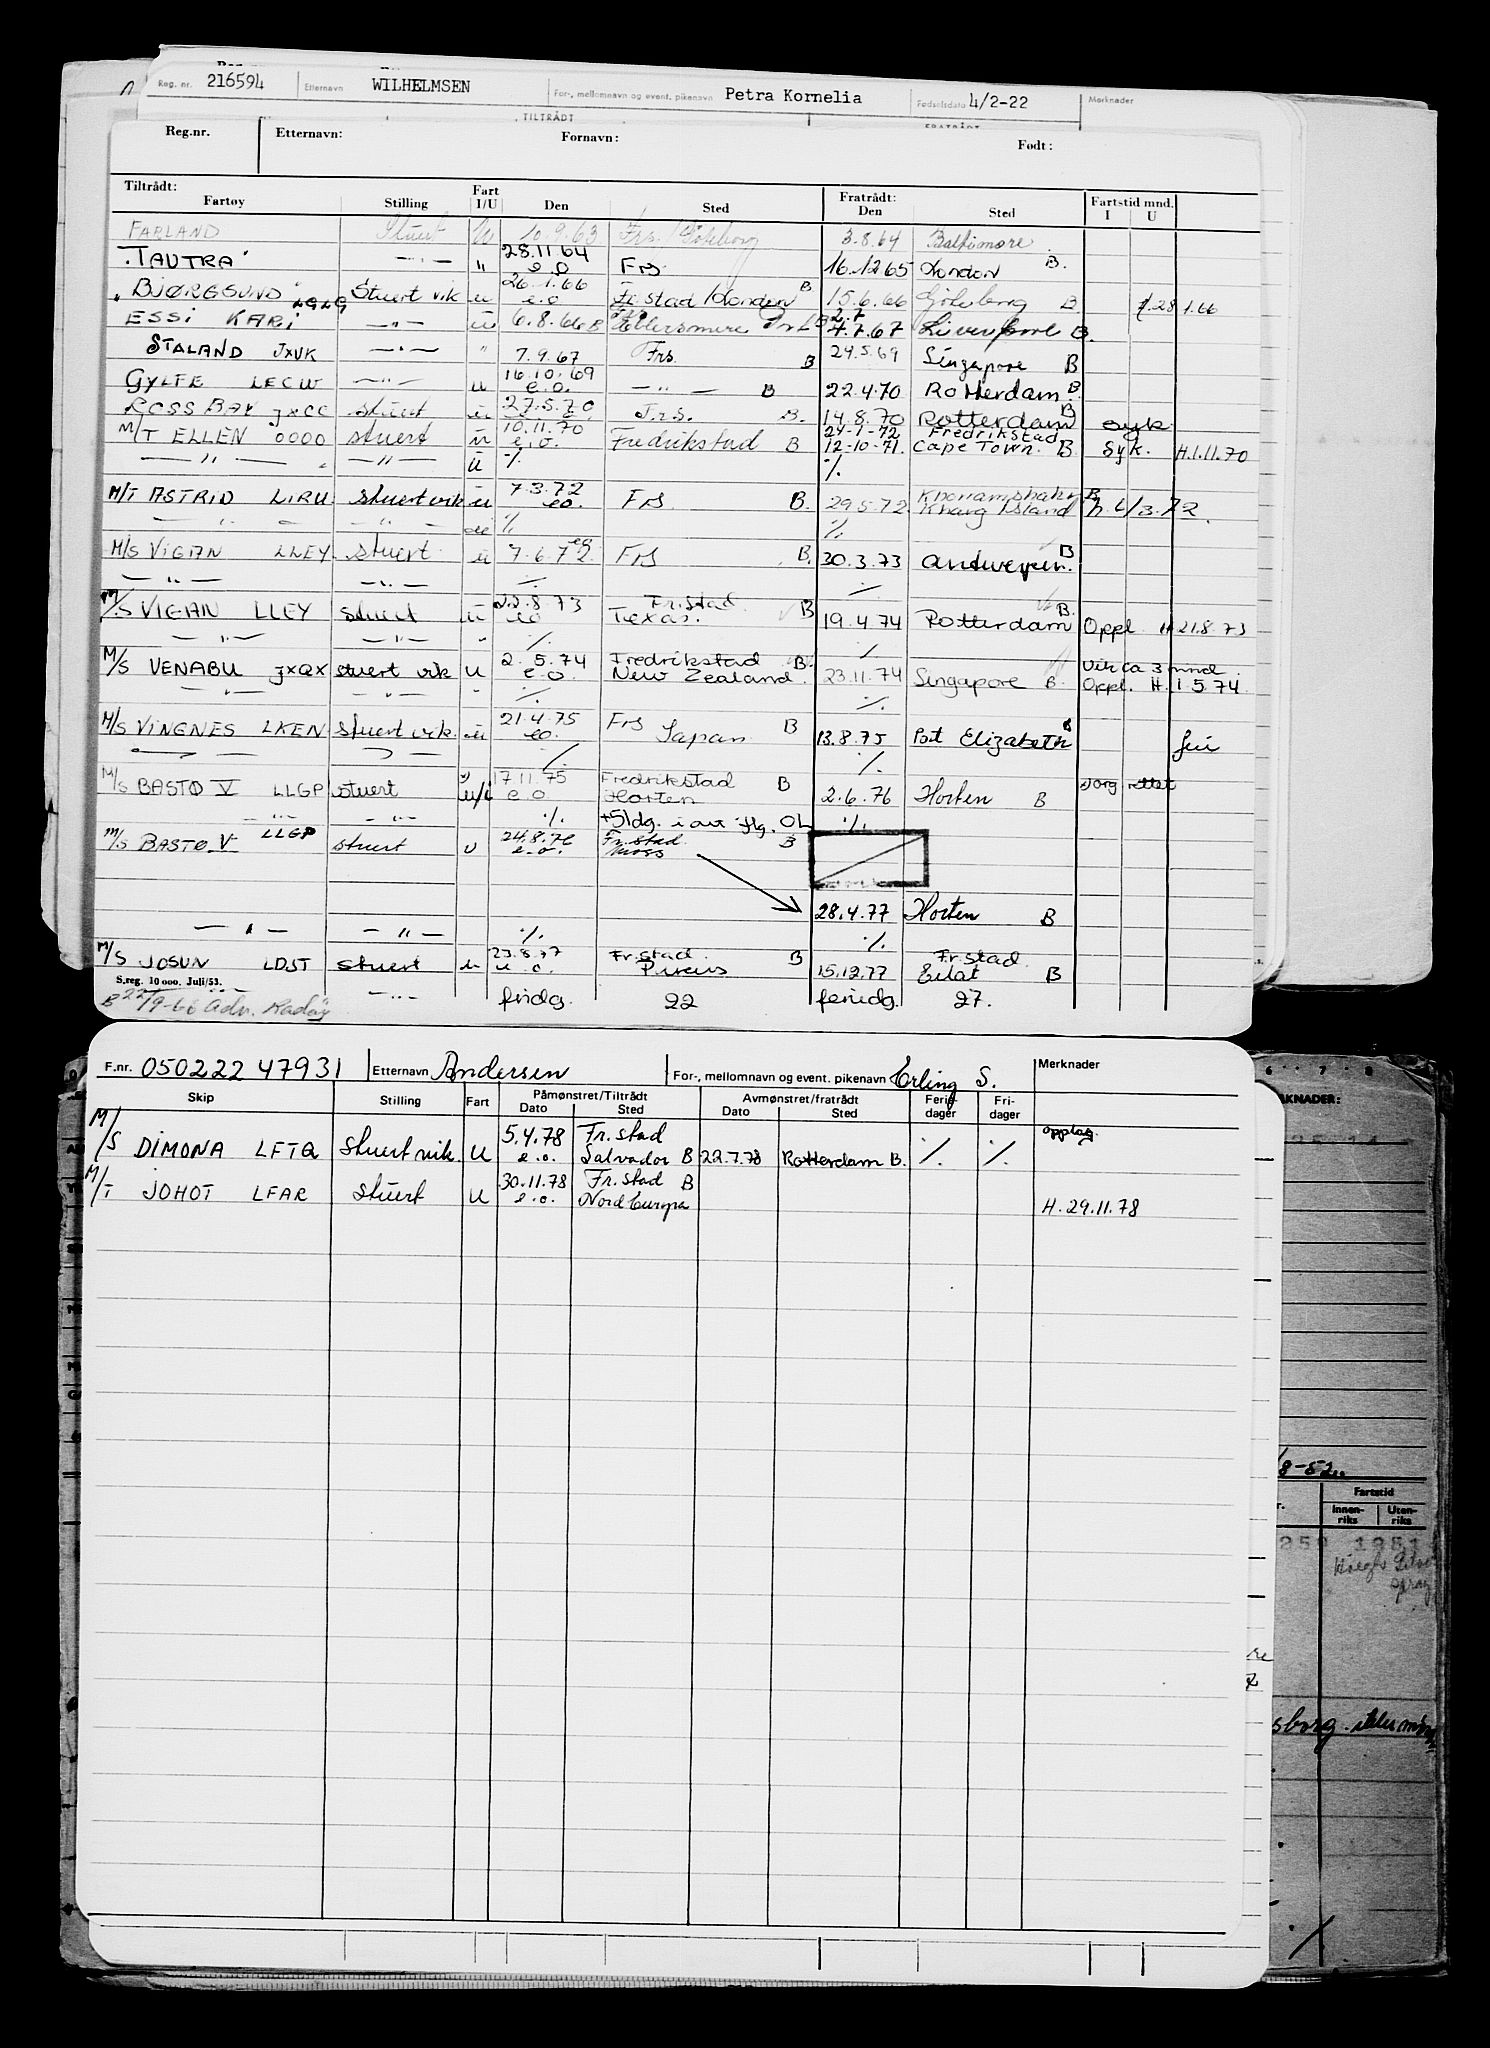 Reg. nr. 216594 Etternavn WILHELMSEN For-, mellomnavn og event. pikenavn Petra Kornelia Fødselsdato 4/2-22 Merknader
TILTRÅDT
Reg.nr. Etternavn: Fornavn: Født:
Tiltrådt: Fratrådt: Fartstid mnd.
Fartøy Stilling Fart I/U Den Sted Den Sted I U
FARLAND Stuert U 10.9.63 Frs. / Göteborg 3.8.64 Baltimore
"TAUTRA" —"— " 28.11.64 e.o Frs. 16.12.65 London B.
"BJØRGSUND" LGLG Stuert vik u 26.1.66 e.o Fr.stad / London B 15.6.66 Göteborg B 1.66
ESSI KARI —"— u 6.8.66 B Ellesmere Port B 2.7 4.7.67 Liverpool B.
STALAND JXVK —"— " 7.9.67 Frs. B 24.5.69 Singapore B
GYLFE LECW —"— u 16.10.69 e.o. —"— B 22.4.70 Rotterdam B
ROSS BAY JXCC stuert u 27.5.70 Frs. B. 14.8.70 Rotterdam B syk
M/T ELLEN OOOO stuert u 10.11.70 e.o. Fredrikstad B 24-1-72 Fredrikstad
12-10-71. Cape Town. B Syk. H.1.11.70
—"— —"— u % %
M/T ASTRID LIRU stuert vik u 7.3.72 eo. Frs B. 29.5.72. Kharg Island B
—"— —"— % %
M/S VIGAN LLEY stuert u 7.6.72 eo Frs B. 30.3.73 Antwerpen. B
—"— —"— % %
M/S VIGAN LLEY stuert u 22.8.73 eo Fr.stad Texas. B 19.4.74 Rotterdam B. Oppl. H 21.8.73
—"— —"— " % %
M/S VENABU JXQX stuert vik u 2.5.74 e.o. Fredrikstad New Zealand B. 23.11.74 Singapore B. Vik ca 3 mnd.
Oppl. H. 1.5.74
—"— —"— " % %
M/S VINGNES LKEN stuert vik. u 21.4.75 eo. Frs Japan B 13.8.75 Port Elizabeth B
% %
M/S BASTØ V LLGP stuert u/i 17.11.75 e.o Fredrikstad Horten B 2.6.76 Horten B
—"— —"— % +5 ldg. OL %
M/S BASTØ V LLGP stuert u 24.8.76 e.o. Fr.stad Moss B
28.4.77 Horten B
—"— —"— % %
M/S JOSUN LDST stuert u 23.8.77 u.o. Fr.stad. Pireus B 15.12.77 Fr.stad Eilat B
S.reg. 10 000. Juli/53. —"— fridg. 22 feriedg. 27.
B 22/9-66 Adr.
F.nr. 050222 47931 Etternavn Andersen For-, mellomnavn og event. pikenavn Erling S. Merknader
Skip Stilling Fart Påmønstret/Tiltrådt Dato Sted Avmønstret/fratrådt Dato Sted Ferie-dager Fri-dager
M/S DIMONA LFTQ Stuert vik. U 5.4.78 e.o. Fr.stad Salvador B 22.7.78 Rotterdam B. % % opplag
M/T JOHOT LFAR Stuert U 30.11.78 e.o. Fr.stad B Nord Europa H. 29.11.78
6 7 8
KNADER:
/8-52.
Fartstid
Innen-riks Uten-riks